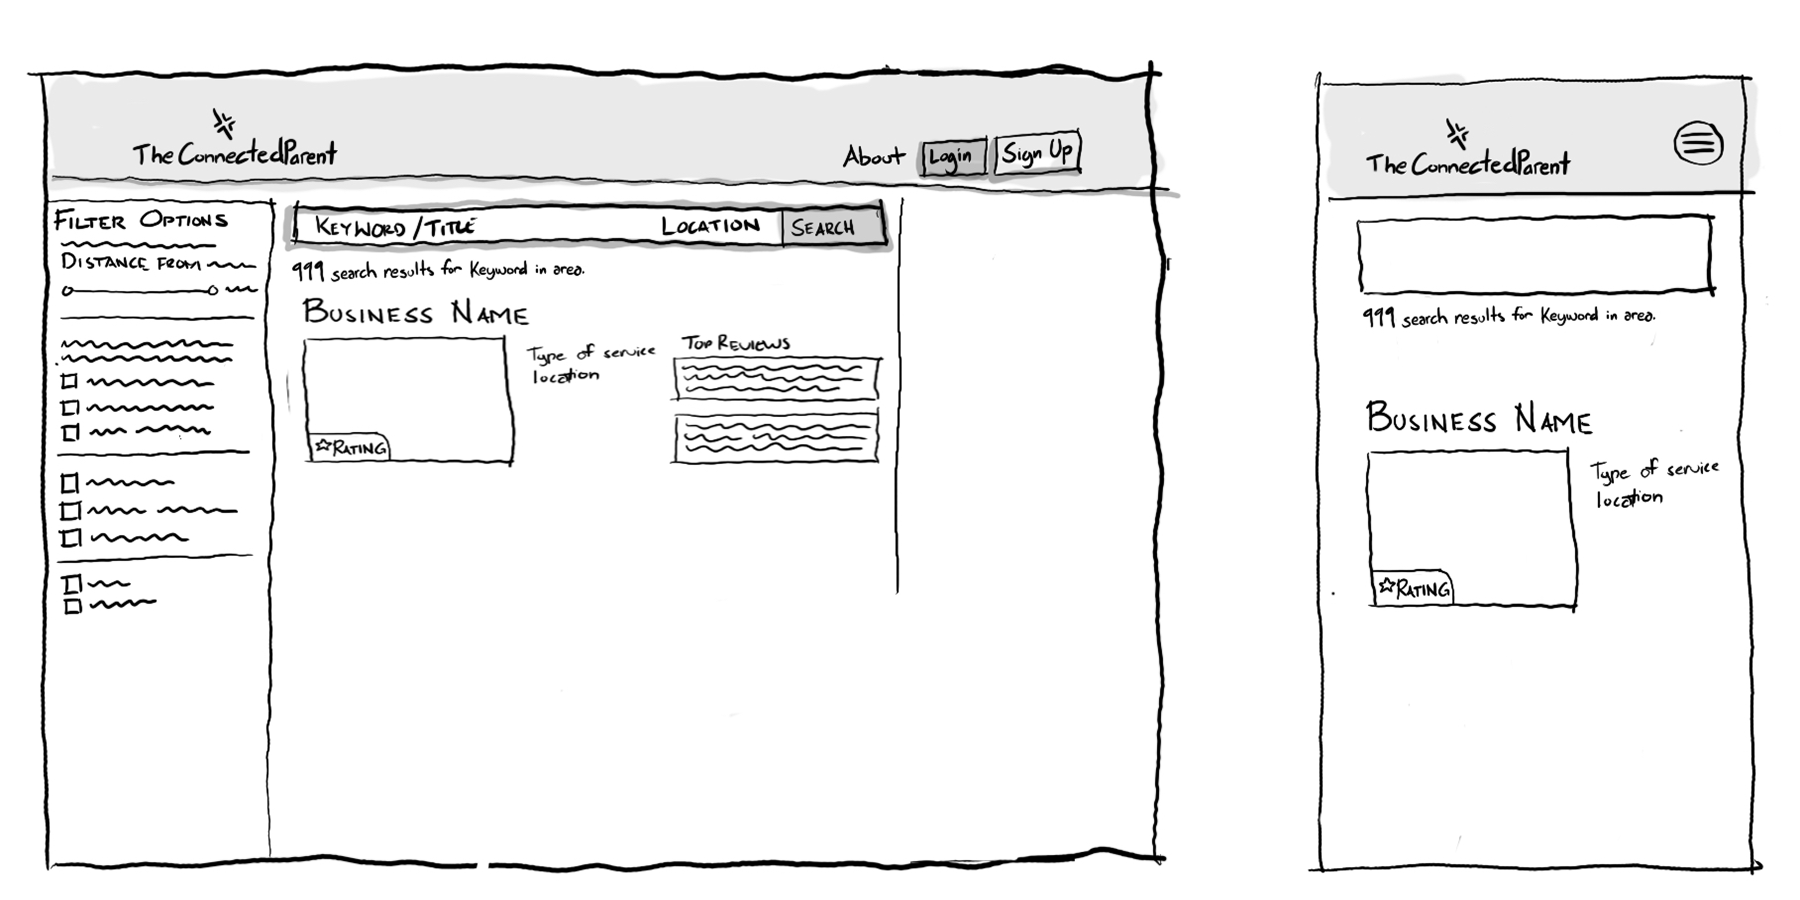 The ConnectedParent
About
Login
Sign Up
FILTER OPTIONS
DISTANCE FROM
KEYWORD / TITLE
LOCATION
SEARCH
999 search results for Keyword in area.
BUSINESS NAME
Type of service
location
RATING
TOP REVIEWS
The ConnectedParent
999 search results for Keyword in area.
BUSINESS NAME
Type of service
location
RATING